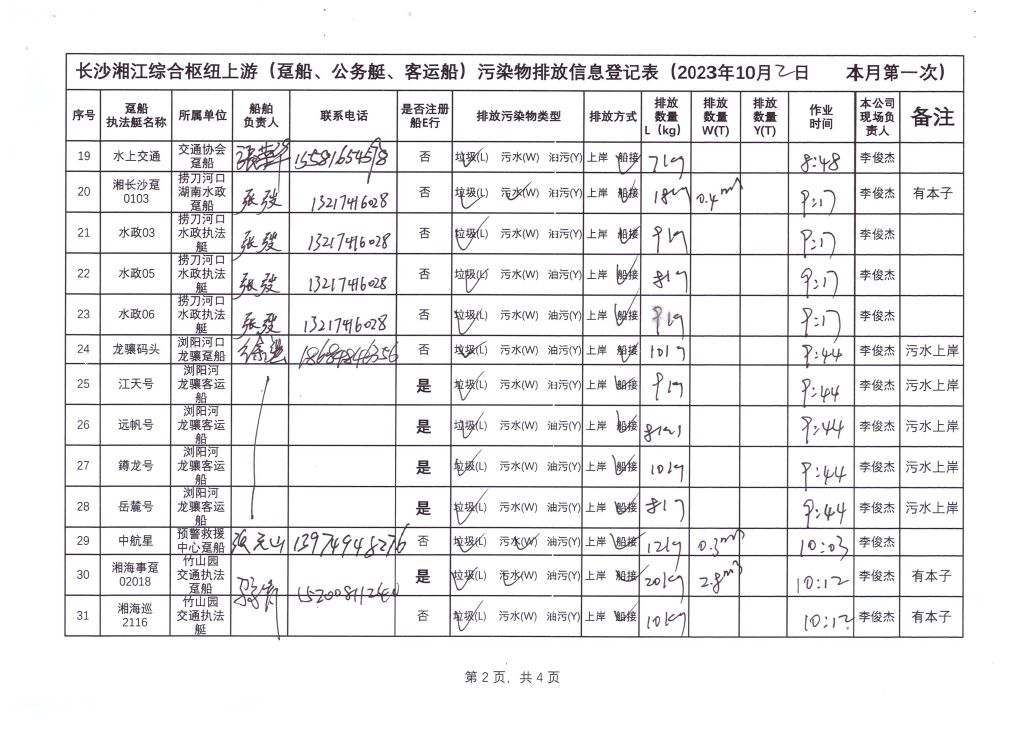 长沙湘江综合枢纽上游（趸船、公务艇、客运船）污染物排放信息登记表（2023年10月2日 本月第一次）
序号 趸船执法艇名称 所属单位 船舶负责人 联系电话 是否注册船E行 排放污染物类型 排放方式 排放数量L（kg） 排放数量W(T) 排放数量Y(T) 作业时间 本公司现场负责人 备注
19 水上交通 交通协会趸船 15581654518 否 垃圾(L) 污水(W) 油污(Y) 上岸 船接 7kg 8:48 李俊杰
20 湘长沙趸0103 捞刀河口湖南水政趸船 张骏 13217416028 否 垃圾(L) 污水(W) 油污(Y) 上岸 船接 18kg 0.4m³ 9:17 李俊杰 有本子
21 水政03 捞刀河口水政执法艇 张骏 13217416028 否 垃圾(L) 污水(W) 油污(Y) 上岸 船接 9kg 9:17 李俊杰
22 水政05 捞刀河口水政执法艇 张骏 13217416028 否 垃圾(L) 污水(W) 油污(Y) 上岸 船接 8kg 9:17 李俊杰
23 水政06 捞刀河口水政执法艇 张骏 13217416028 否 垃圾(L) 污水(W) 油污(Y) 上岸 船接 9kg 9:17 李俊杰
24 龙骧码头 浏阳河口龙骧趸船 18684846356 否 垃圾(L) 污水(W) 油污(Y) 上岸 船接 10kg 9:44 李俊杰 污水上岸
25 江天号 浏阳河龙骧客运船 是 垃圾(L) 污水(W) 油污(Y) 上岸 船接 9kg 9:44 李俊杰 污水上岸
26 远帆号 浏阳河龙骧客运船 是 垃圾(L) 污水(W) 油污(Y) 上岸 船接 8kg 9:44 李俊杰 污水上岸
27 鐏龙号 浏阳河龙骧客运船 是 垃圾(L) 污水(W) 油污(Y) 上岸 船接 10kg 9:44 李俊杰 污水上岸
28 岳麓号 浏阳河龙骧客运船 是 垃圾(L) 污水(W) 油污(Y) 上岸 船接 8kg 9:44 李俊杰 污水上岸
29 中航星 预警救援中心趸船 13974948276 否 垃圾(L) 污水(W) 油污(Y) 上岸 船接 12kg 0.3m³ 10:03 李俊杰
30 湘海事趸02018 竹山园交通执法趸船 是 垃圾(L) 污水(W) 油污(Y) 上岸 船接 20kg 2.8m³ 10:12 李俊杰 有本子
31 湘海巡2116 竹山园交通执法艇 否 垃圾(L) 污水(W) 油污(Y) 上岸 船接 10kg 10:12 李俊杰 有本子
第 2 页，共 4 页